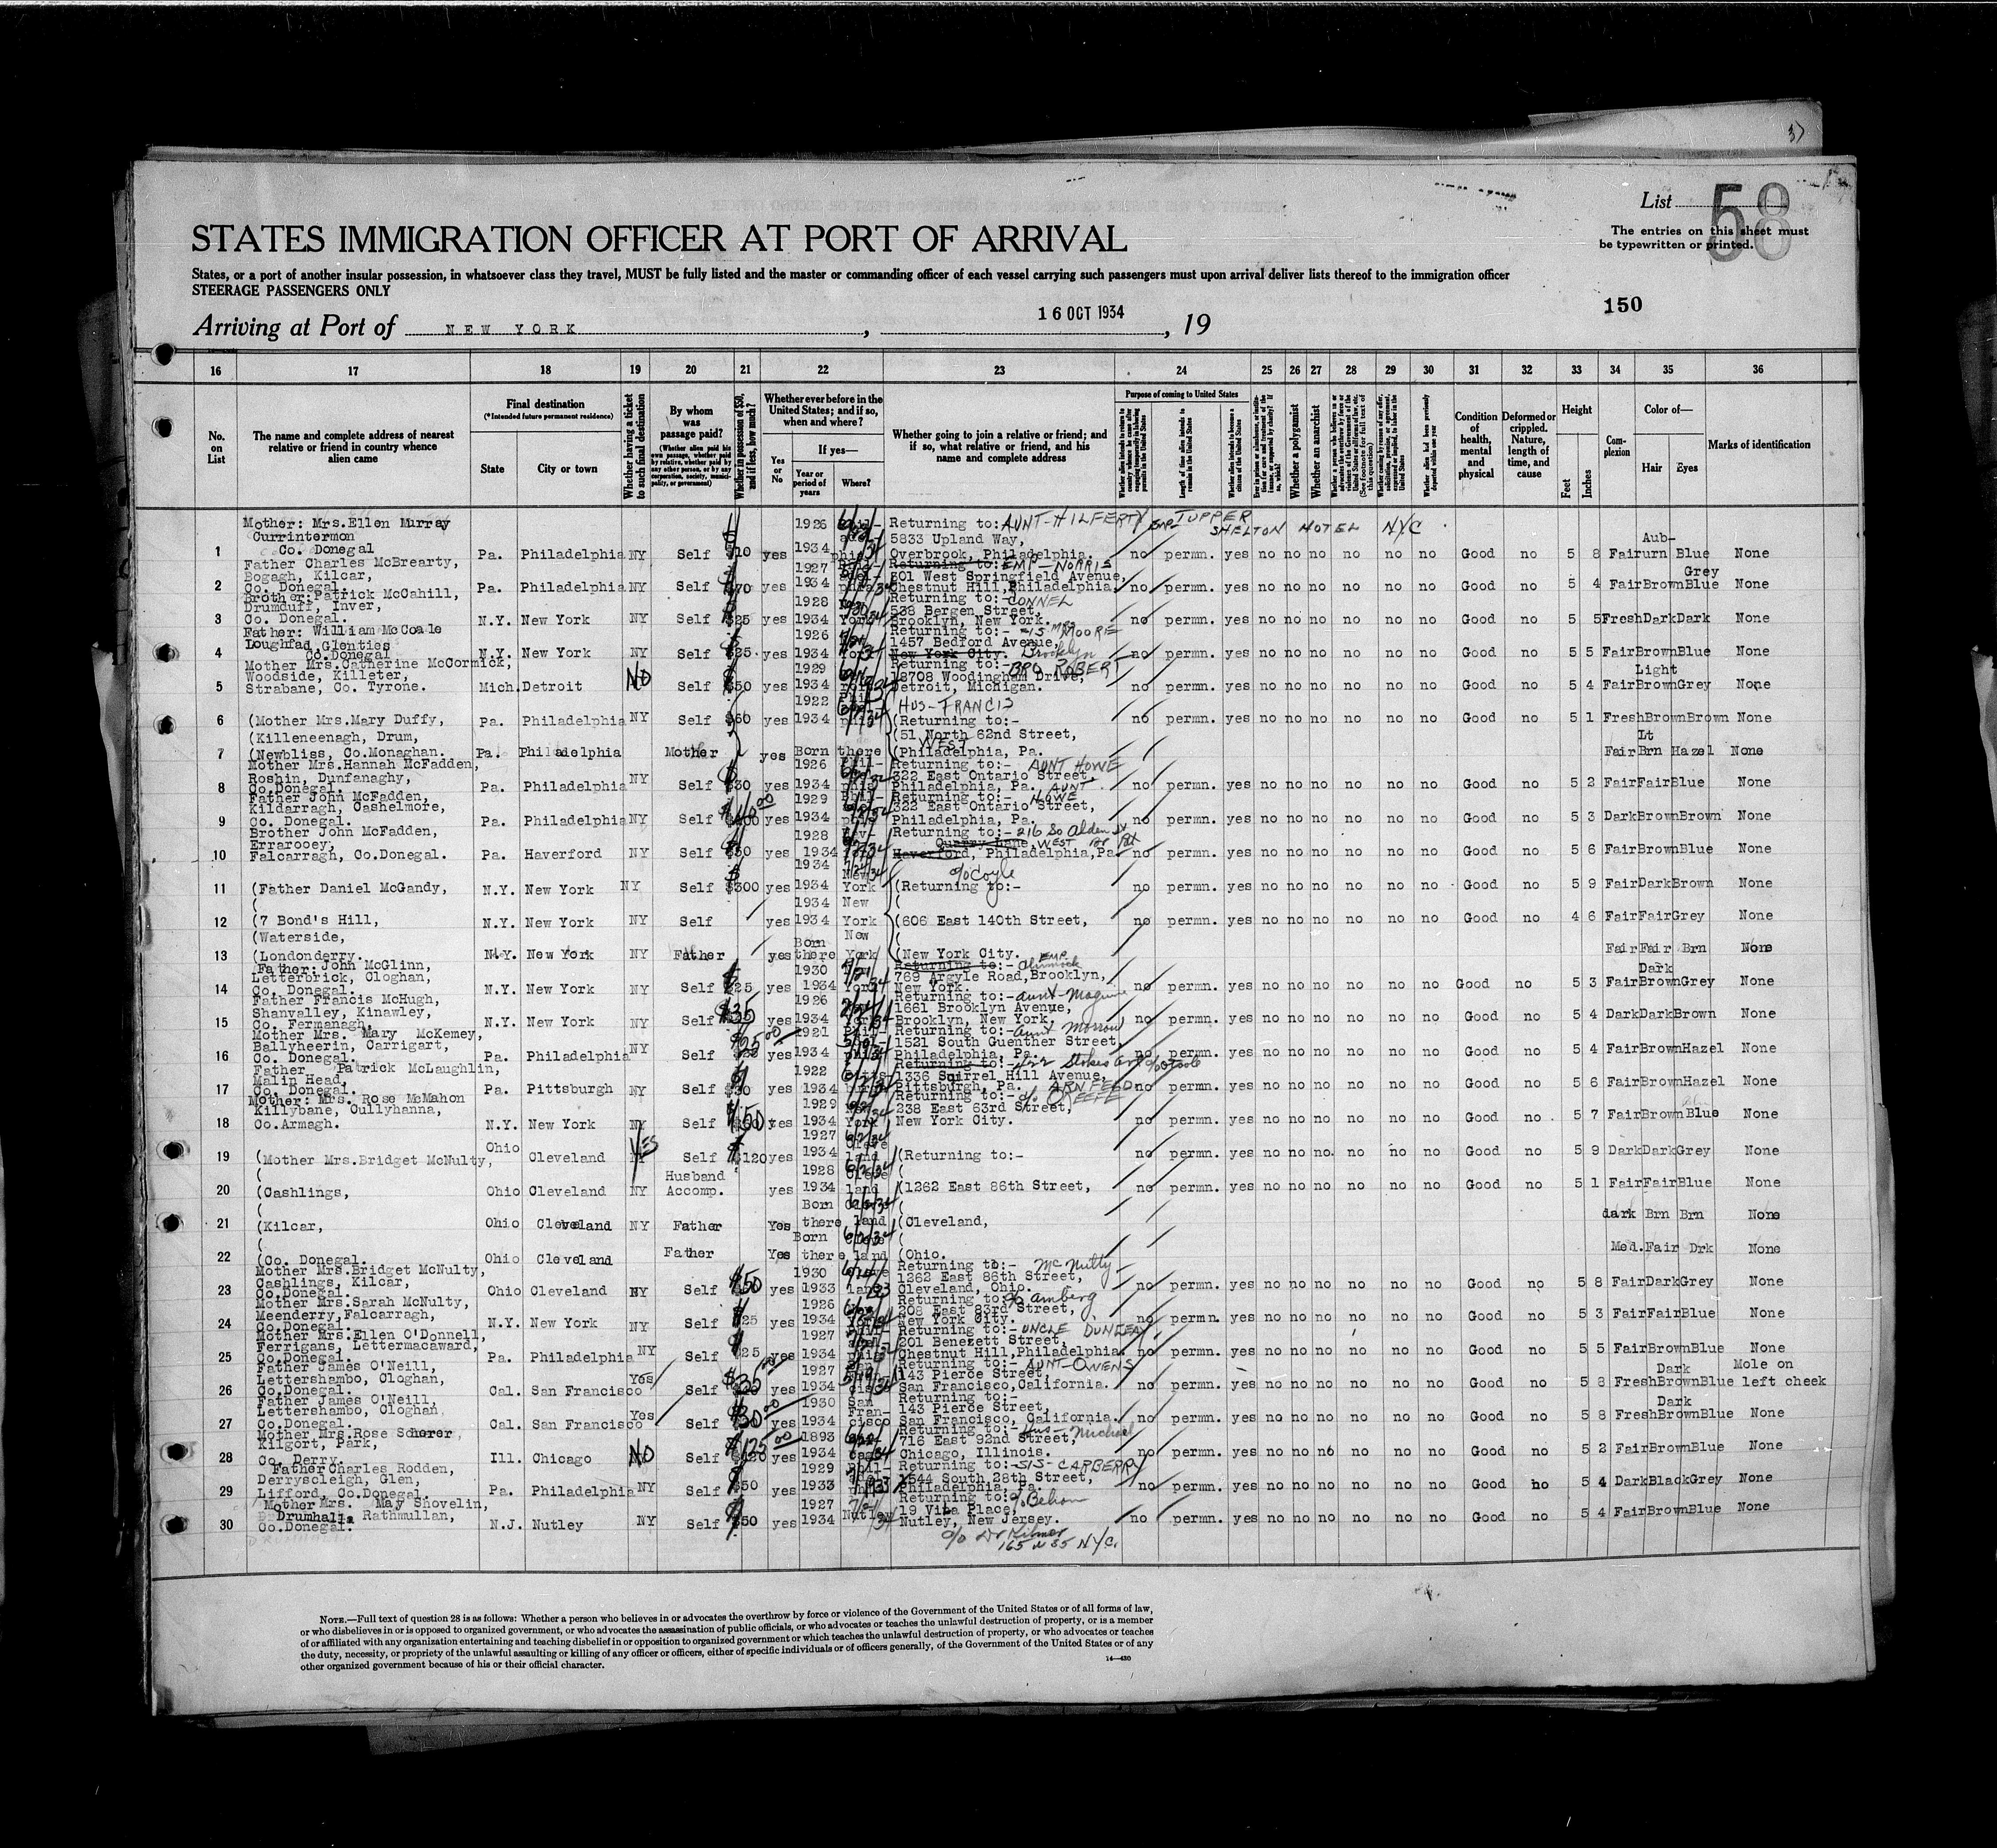 37
List 58
The entries on this sheet must
be typewritten or printed.
STATES IMMIGRATION OFFICER AT PORT OF ARRIVAL
States, or a port of another insular possession, in whatsoever class they travel, MUST be fully listed and the master or commanding officer of each vessel carrying such passengers must upon arrival deliver lists thereof to the immigration officer
STEERAGE PASSENGERS ONLY
150
Arriving at Port of NEW YORK, 16 OCT 1934, 19
16 17 18 19 20 21 22 23 24 25 26 27 28 29 30 31 32 33 34 35 36
No. on List
The name and complete address of nearest relative or friend in country whence alien came
Final destination
(*Intended future permanent residence)
State
City or town
Whether having a ticket to such final destination
By whom was passage paid?
Whether in possession of $50, and if less, how much?
Whether ever before in the United States; and if so, when and where?
Yes or No
If yes—
Year or period of years
Where?
Whether going to join a relative or friend; and if so, what relative or friend, and his name and complete address
Purpose of coming to United States
Whether a polygamist
Whether an anarchist
Condition of health, mental and physical
Deformed or crippled. Nature, length of time, and cause
Height
Feet
Inches
Complexion
Color of—
Hair
Eyes
Marks of identification
Mother: Mrs.Ellen Murray 1926 Returning to: AUNT-HILFERTY EMP TUPPER
Currintermon 5833 Upland Way, SHELTON HOTEL NYC
1 Co. Donegal Pa. Philadelphia NY Self $10 yes 1934 Overbrook, Philadelphia. no permn. yes no no no no no no Good no 5 8 Fair Auburn Blue None
Father Charles McBrearty, 1927 Returning to: EMP-NORRIS
Bogagh, Kilcar, 801 West Springfield Avenue, Grey
2 Co. Donegal. Pa. Philadelphia NY Self $70 yes 1934 Chestnut Hill, Philadelphia. no permn. yes no no no no no no Good no 5 4 Fair Brown Blue None
Brother: Patrick McCahill, 1928 Returning to:- CONNEL
Drumduff, Inver, 538 Bergen Street,
3 Co. Donegal. N.Y. New York NY Self $25 yes 1934 York Brooklyn, New York. no permn. yes no no no no no no Good no 5 5 Fresh Dark Dark None
Father: William McCoale 1926 Returning to:- MOORE
Loughfad, Glenties 1457 Bedford Avenue,
4 Co.Donegal N.Y. New York NY Self $25. yes 1934 York New York City. Brooklyn no permn. yes no no no no no no Good no 5 5 Fair Brown Blue None
Mother Mrs.Catherine McCormick, 1929 Returning to:- BRO ROBERT
Woodside, Killeter, 18708 Woodingham Drive, Light
5 Strabane, Co. Tyrone. Mich. Detroit NO Self $50 yes 1934 Detroit, Michigan. no permn. yes no no no no no no Good no 5 4 Fair Brown Grey None
1922 HUS-FRANCIS
6 (Mother Mrs.Mary Duffy, Pa. Philadelphia NY Self $60 yes 1934 (Returning to:- no permn. yes no no no no no no Good no 5 1 Fresh Brown Brown None
(Killeneenagh, Drum, (51 North 62nd Street, WEST Lt
7 (Newbliss, Co.Monaghan. Pa. Philadelphia Mother yes Born there (Philadelphia, Pa. Fair Brn Hazel None
Mother Mrs.Hannah McFadden, 1926 Returning to:- AUNT HOWE
Roshin, Dunfanaghy, 322 East Ontario Street,
8 Co.Donegal. Pa. Philadelphia NY Self $30 yes 1934 Philadelphia, Pa. no permn. yes no no no no no no Good no 5 2 Fair Fair Blue None
Father John McFadden, 1929 Returning to:- AUNT HOWE
Kildarragh, Cashelmore, 322 East Ontario Street,
9 Co. Donegal. Pa. Philadelphia NY Self yes 1934 Philadelphia, Pa. no permn. yes no no no no no no Good no 5 3 Dark Brown Brown None
Brother John McFadden, 1928 Returning to:- 216 So Alden St
Errarooey, Quarry Lane, WEST
10 Falcarragh, Co.Donegal. Pa. Haverford NY Self $50 yes 1934 Haverford, Philadelphia, Pa. no permn. yes no no no no no no Good no 5 6 Fair Brown Blue None
1934 New c/o Coyle
11 (Father Daniel McGandy, N.Y. New York NY Self $300 yes 1934 York (Returning to:- no permn. yes no no no no no no Good no 5 9 Fair Dark Brown None
1934 New
12 (7 Bond's Hill, N.Y. New York NY Self yes 1934 York (606 East 140th Street, no permn. yes no no no no no no Good no 4 6 Fair Fair Grey None
(Waterside, Born New
13 (Londonderry. N.Y. New York NY Father yes there York (New York City. Fair Fair Brn None
Father: John McGlinn, 1930 Returning to:- EMP
Letterbrick, Cloghan, 769 Argyle Road, Brooklyn, Dark
14 Co. Donegal. N.Y. New York NY Self $25 yes 1934 York New York. no permn. yes no no no no no no Good no 5 3 Fair Brown Grey None
Father Francis McHugh, 1926 Returning to:- Aunt-Maguire
Shanvalley, Kinawley, 1661 Brooklyn Avenue,
15 Co. Fermanagh. N.Y. New York NY Self $35 yes 1934 York Brooklyn, New York. no permn. yes no no no no no no Good no 5 4 Dark Dark Brown None
Mother Mrs. Mary McKemey, 1921 Returning to:- Aunt Morrow
Ballyheerin, Carrigart, 1521 South Guenther Street,
16 Co. Donegal. Pa. Philadelphia NY Self yes 1934 Philadelphia, Pa. no permn. yes no no no no no no Good no 5 4 Fair Brown Hazel None
Father Patrick McLaughlin, 1922 Returning to:-
Malin Head, 1336 Squirrel Hill Avenue,
17 Co. Donegal. Pa. Pittsburgh NY Self $30 yes 1934 Pittsburgh, Pa. ARNFELD no permn. yes no no no no no no Good no 5 6 Fair Brown Hazel None
Mother: Mrs. Rose McMahon 1929 Returning to:- c/o O'KEEFE
Killybane, Cullyhanna, 238 East 63rd Street,
18 Co.Armagh. N.Y. New York NY Self $50 yes 1934 York New York City. no permn. yes no no no no no no Good no 5 7 Fair Brown Blue None
1927
19 (Mother Mrs.Bridget McNulty, Ohio Cleveland YES Self $120 yes 1934 (Returning to:- no permn. yes no no no no no no Good no 5 9 Dark Dark Grey None
Husband 1928
20 (Cashlings, Ohio Cleveland NY Accomp. yes 1934 land (1262 East 86th Street, no permn. yes no no no no no no Good no 5 1 Fair Fair Blue None
Born
21 (Kilcar, Ohio Cleveland NY Father Yes there land (Cleveland, dark Brn Brn None
Born
22 (Co. Donegal. Ohio Cleveland Father Yes there land (Ohio. Med. Fair Drk None
Mother Mrs.Bridget McNulty, 1930 Returning to:- McNulty
Cashlings, Kilcar, 1262 East 86th Street,
23 Co.Donegal. Ohio Cleveland NY Self $50 yes 1933 Cleveland, Ohio. no permn. yes no no no no no no Good no 5 8 Fair Dark Grey None
Mother Mrs.Sarah McNulty, 1926 Returning to:- c/o Amberg
Meenderry, Falcarragh, 208 East 83rd Street,
24 Co.Donegal. N.Y. New York NY Self $25 yes 1934 New York City. no permn. yes no no no no no no Good no 5 3 Fair Fair Blue None
Mother Mrs.Ellen O'Donnell, 1927 Returning to:- UNCLE DUNLEAVY
Ferrigans, Lettermacaward, 201 Benezett Street,
25 Co.Donegal. Pa. Philadelphia NY Self $25 yes 1934 Chestnut Hill, Philadelphia. no permn. yes no no no no no no Good no 5 5 Fair Brown Blue None
Father James O'Neill, 1927 Returning to:- AUNT-OWENS
Lettershambo, Cloghan, 143 Pierce Street, Dark Mole on
26 Co.Donegal. Cal. San Francisco Yes Self $35 yes 1934 San Francisco, California. no permn. yes no no no no no no Good no 5 8 Fresh Brown Blue left cheek
Father James O'Neill, 1930 San Returning to:-
Lettershambo, Cloghan, Fran- 143 Pierce Street, Dark
27 Co.Donegal. Cal. San Francisco Yes Self $30 yes 1934 cisco San Francisco, California. no permn. yes no no no no no no Good no 5 8 Fresh Brown Blue None
Mother Mrs.Rose 1893 Returning to:- Hus-Michael
Kilgort, Park, 716 East 92nd Street,
28 Co. Derry. Ill. Chicago NO Self $125 yes 1934 Chicago, Illinois. no permn. yes no no no no no no Good no 5 2 Fair Brown Blue None
Father Charles Rodden, 1929 Returning to:- SIS-CARBERRY
Derryscleigh, Glen, 2544 South 28th Street,
29 Lifford, Co.Donegal. Pa. Philadelphia NY Self $50 yes 1933 Philadelphia, Pa. no permn. yes no no no no no no Good no 5 4 Dark Black Grey None
Mother Mrs. May Shovelin, 1927 Returning to:- c/o
Drumhalla Rathmullan, 19 Vita Place,
30 Co.Donegal. N.J. Nutley NY Self $50 yes 1934 Nutley Nutley, New Jersey. no permn. yes no no no no no no Good no 5 4 Fair Brown Blue None
c/o Dr Kilmer
NYC.
NOTE.—Full text of question 28 is as follows: Whether a person who believes in or advocates the overthrow by force or violence of the Government of the United States or of all forms of law,
or who disbelieves in or is opposed to organized government, or who advocates the assassination of public officials, or who advocates or teaches the unlawful destruction of property, or is a member
of or affiliated with any organization entertaining and teaching disbelief in or opposition to organized government or which teaches the unlawful destruction of property, or who advocates or teaches
the duty, necessity, or propriety of the unlawful assaulting or killing of any officer or officers, either of specific individuals or of officers generally, of the Government of the United States or of any
other organized government because of his or their official character.
14—430